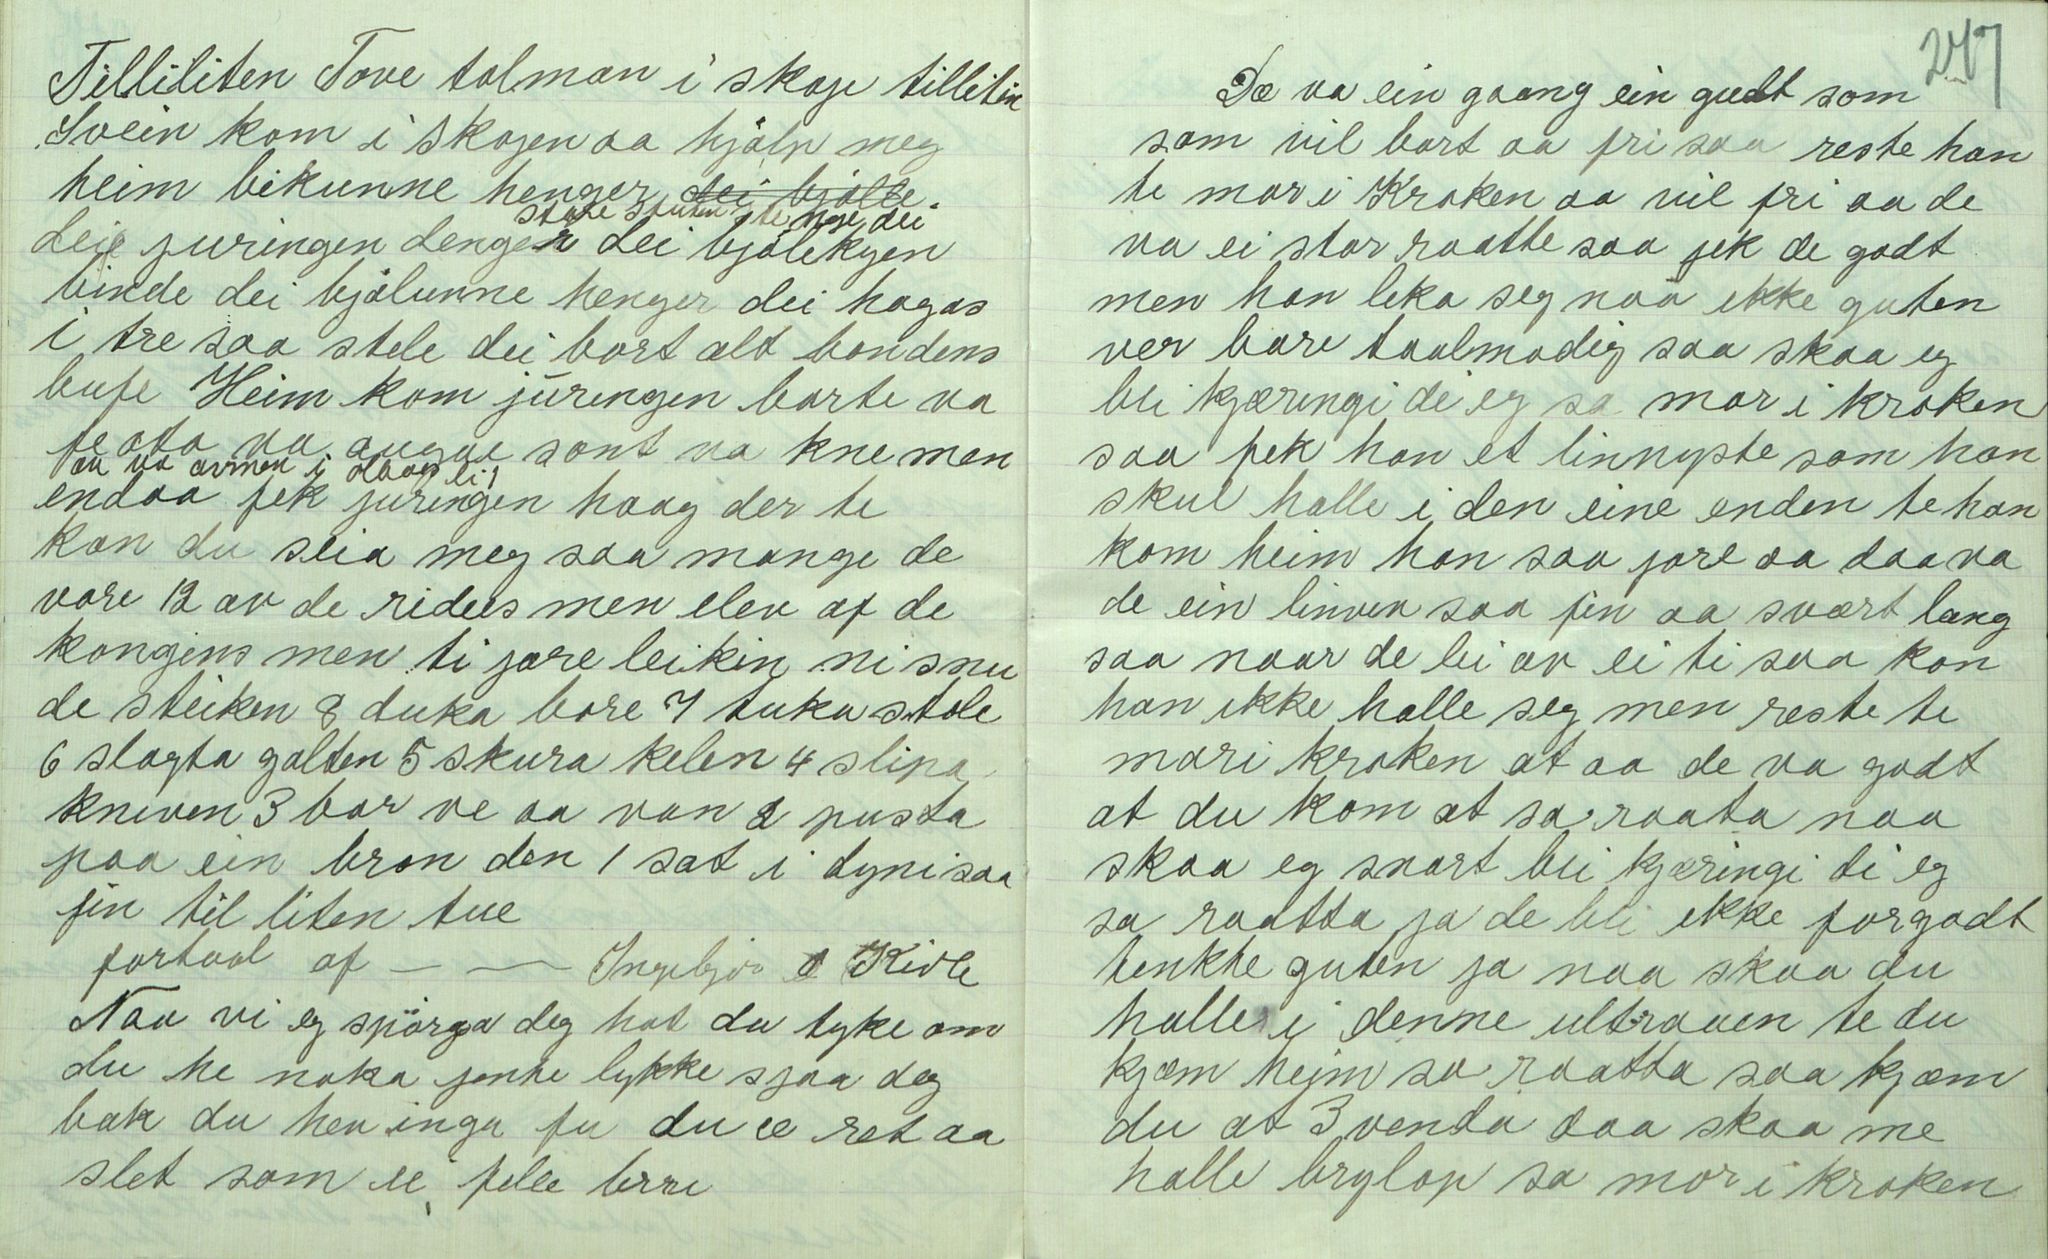 Tilliliten Tove tolman i skoge tillitin
Svein kom i skogen aa hjålp meg
heim bikunne henger dei bjölle.
store stuten stenge dei
dei juringen denger dei bjölekyen
binde dei bjölunne henger dei hagas
i tre saa stele dei bort alt bondens
bufe Heim kom juringen borte va
feota va augae sont va kne men
aa va armen i olbogeli
endaa fek juringen haag der te
kan du seia meg saa mange de
vore 12 av de ridees men elev af de
kongens men ti jore leikin ni snu
de steiken 8 duka bore 7 tuka stole
6 slagta galten 5 skura kelen 4 slipa
kneven 3 bar ve aa van 2 pusta
paa ein bron den 1 sat i dyni saa
fin til liten tue
fortaal af — — Ingebjör Kivle
Naa vi eg spörga deg hot du tyke om
du he noka jente lykke sjaa deg
bak du hev inga fu du æ ret aa
slet som ei fele brri
247
Dæ va ein gaang ein gudt som
som vil bort aa fri saa reste han
te mor i Kroken aa vil fri aa de
va ei stor raatte saa jek de godt
men han leka seg naa ikke guten
ver bare taalmodig saa skaa eg
bli kjæringi di eg sa mor i kroken
saa fek han et linnyste som han
skul halle i den eine enden te han
kom heim han saa jore aa daa va
de ein linvev saa fin aa svært lang
saa naar de lei av ei ti saa kon
han ikke halle seg men reste te
mor i kroken at aa de va godt
at du kom at sa raata naa
skaa eg snart bli kjæringi di eg
sa raatta ja de bli ikke forgodt
tenkte guten ja naa skaa du
halle i denne ultraaen te du
kjæm hejm sa raatta saa kjæm
du at 3 venda daa skaa me
halle brylop sa mor i kroken